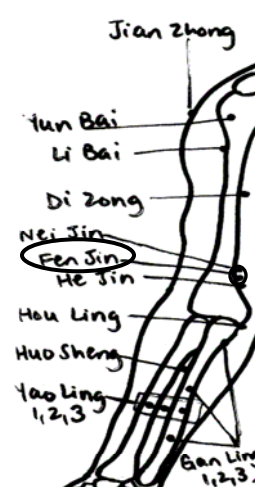 Jian Zhong
Yun Bai
Li Bai
Di Zong
Nei Jin
Fen Jin
He Jin
Hou Ling
Huo Sheng
Yao Ling
1,2,3
Gan Ling
1,2,3